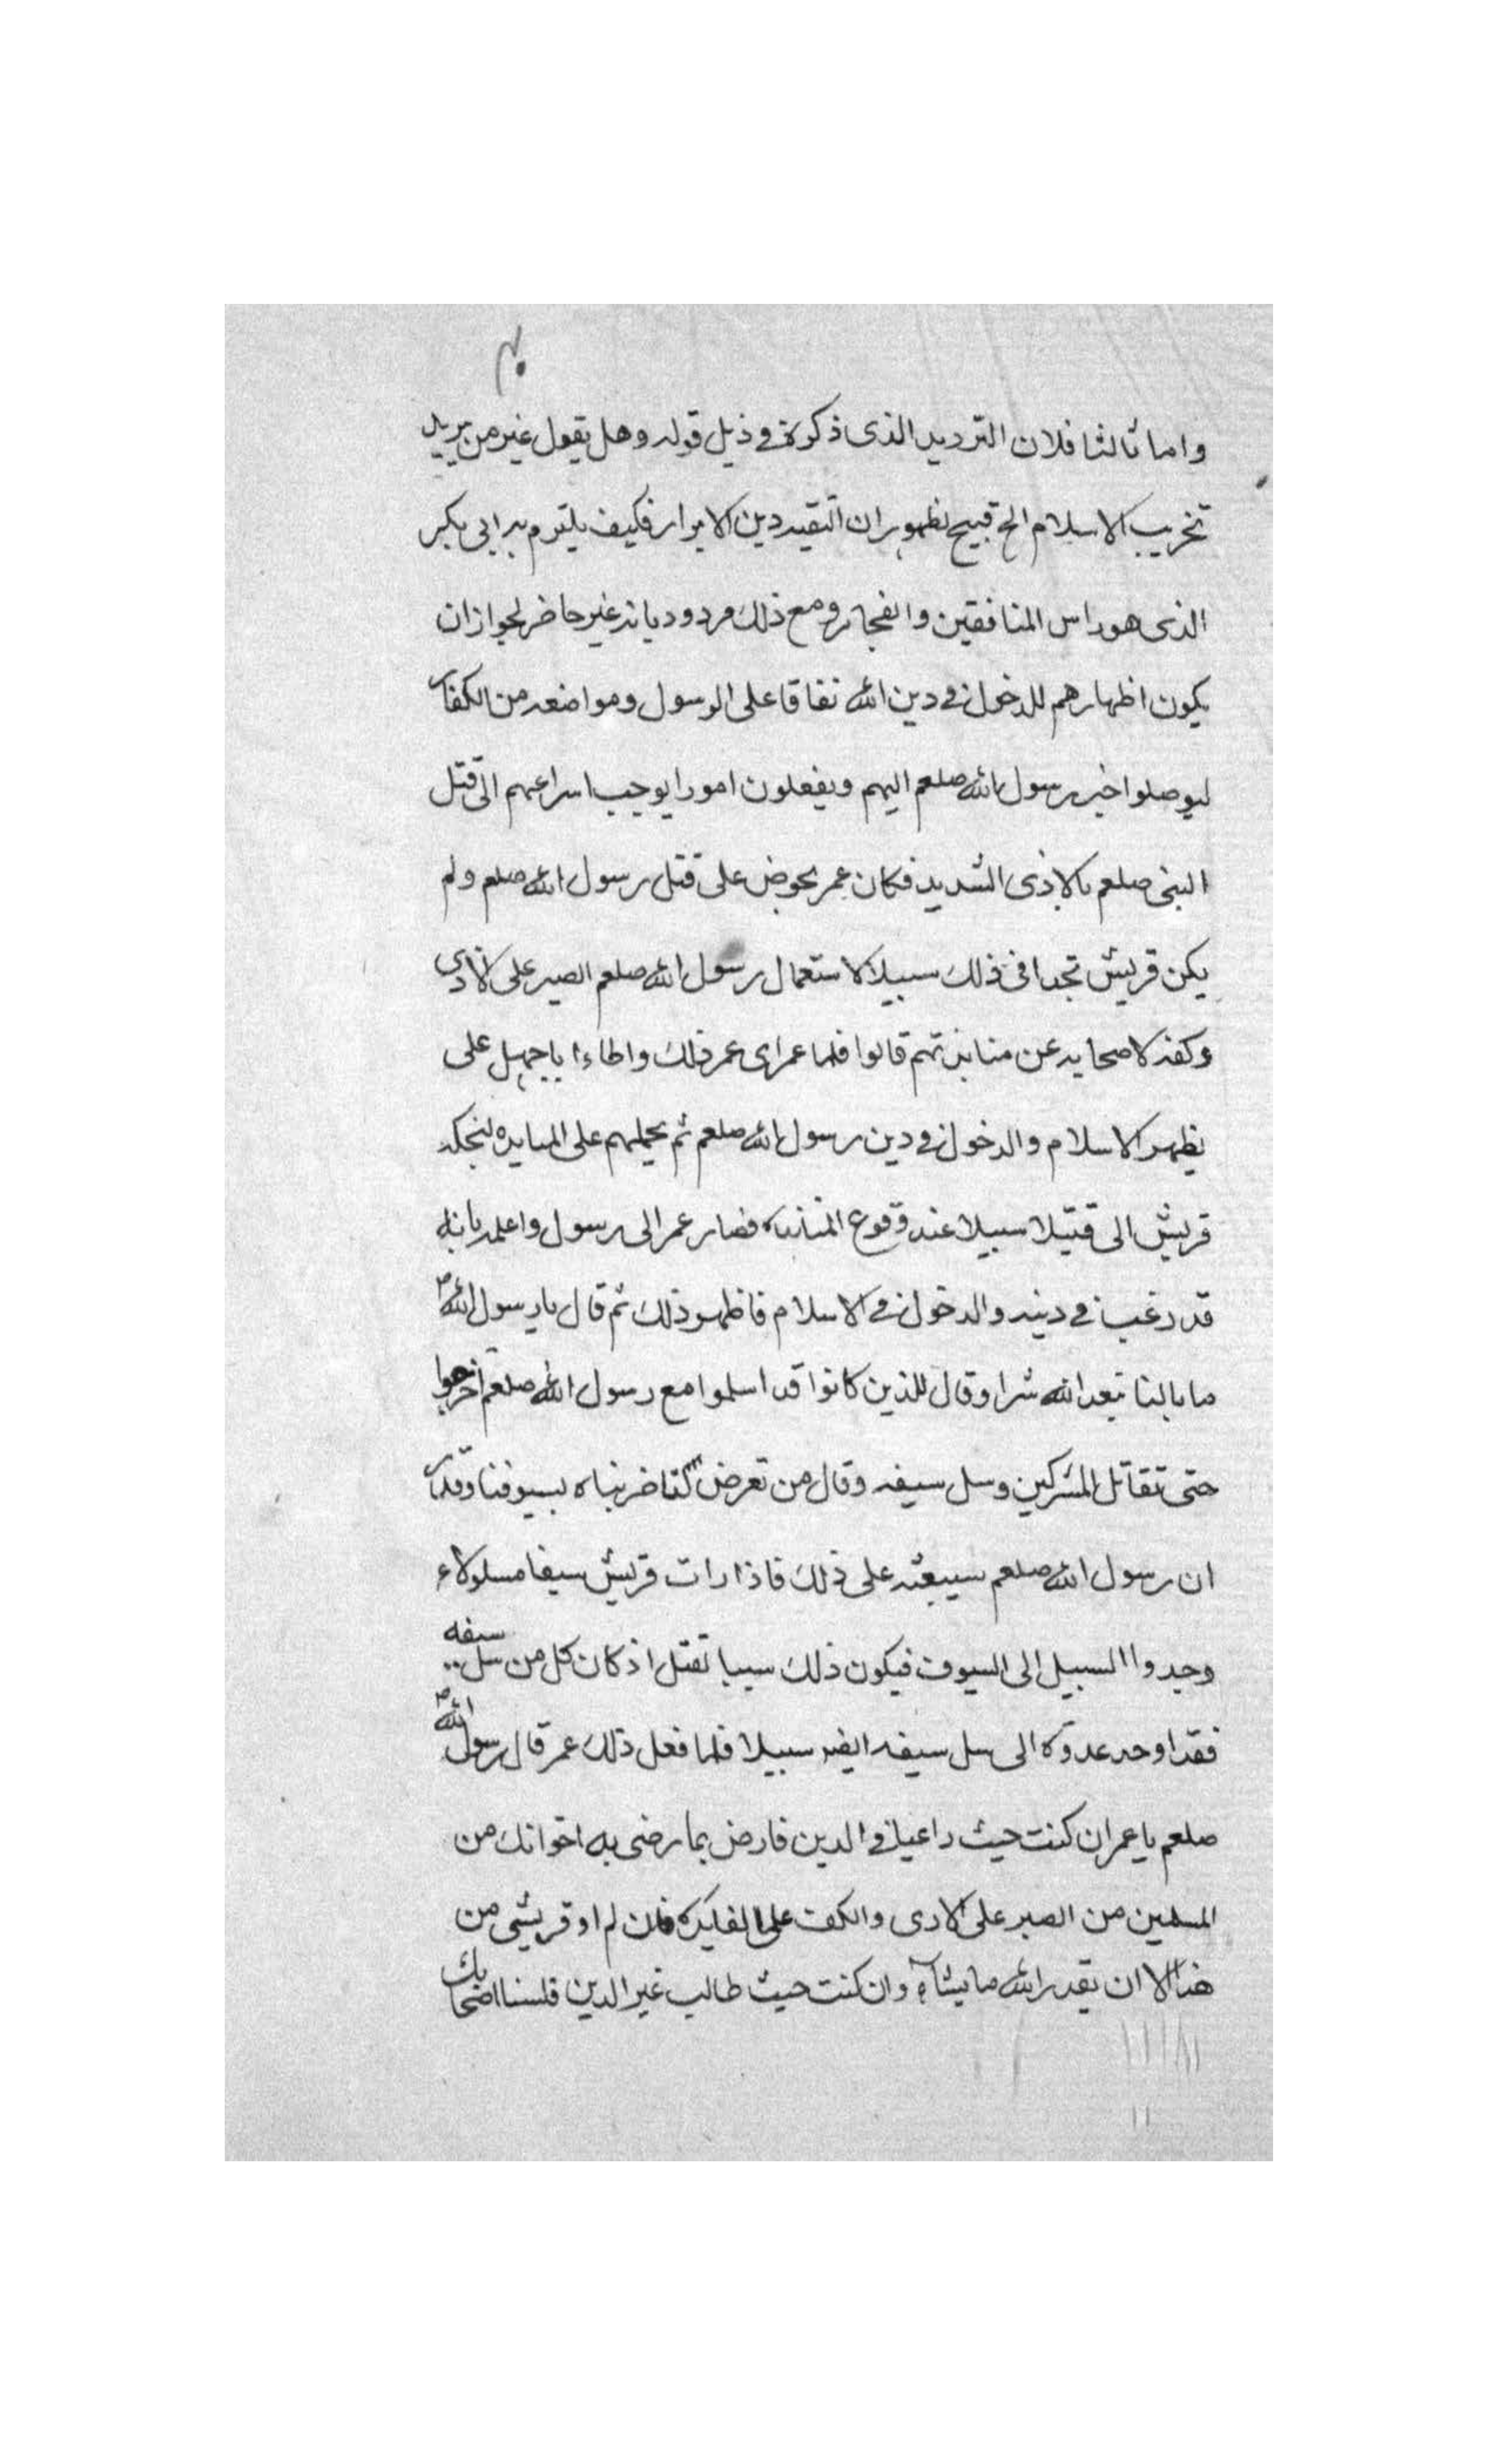 واما ثالثا فلان الترديد الذى ذكره فى ذيل قوله وهل يقول غير من يريد
تخريب الاسلام الخ قبيح لظهور ان التقيه دين الابرار فكيف يلتزم به ابى بكر
الذى هو راس المنافقين والفجار ومع ذلك مردود بانه غير حاضر لجواز ان
يكون اظهارهم للدخول فى دين الله نفاقا على الرسول ومواضعه من الكفار
ليوصلوا خبر رسول الله صلعم اليهم ويفعلون امورا يوجب اسراعهم الى قتل
النبى صلعم بالاذى الشديد فكان عمر يحرض على قتل رسول الله صلعم ولم
يكن قريش تجد فى ذلك سبيلا لاستعمال رسول الله صلعم الصبر على الاذى
وكفه لاصحابه عن منابذتهم قالوا فلما راى عمر ذلك واطاء ابا جهل على
يظهر الاسلام والدخول فى دين رسول الله صلعم ثم يحملهم على المنابذه
قريش الى قتيلا سبيلا عند وقوع المنابذه فصار عمر الى رسول واعلمه بانه
قد رغب فى دينه والدخول فى الاسلام فاظهر ذلك ثم قال يا رسول الله ص
ما بالنا نعبد الله سرا وقال للذين كانوا قد اسلموا مع رسول الله صلعم اخرجوا
حتى نقاتل المشركين وسل سيفه وقال من تعرض لنا ضربناه بسيوفنا وقدر
ان رسول الله صلعم سيبعثه على ذلك فاذا رات قريش سيفا مسلولاء
وجدوا السبيل الى السيوف فيكون ذلك سببا لقتل اذ كان كل من سل سيفه
فقد اوجد عدوه الى سل سيفه ايضه سبيلا فلما فعل ذلك عمر قال رسول الله ص
صلعم يا عمر ان كنت حيث راغبا فى الدين فارض بما رضى به اخوانك من
المسلمين من الصبر على الاذى والكف على فان لم او قريشى من
هذا الا ان يقدر الله ما يشاء وان كنت حيث طالب غير الدين فلسنا اصحابك